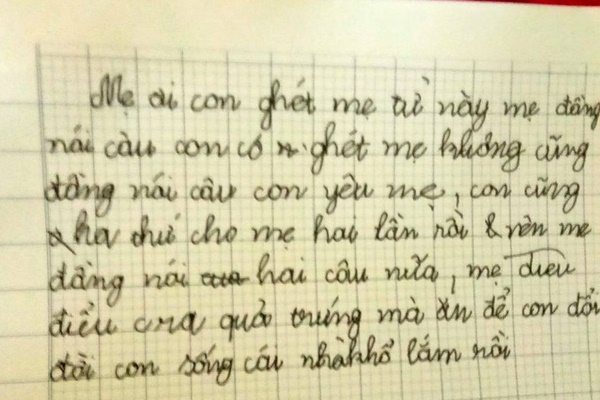 Mẹ ơi con ghét mẹ từ này mẹ đằng
nói câu con có ghét mẹ không cũng
đằng nói câu con yêu mẹ, con cũng
tha thứ cho mẹ hai lần rồi nên mẹ
đằng nói hai câu nữa, mẹ
điều cra quả trưng mà ăn để con đổi
đời con sống cái nhà khổ lắm rồi